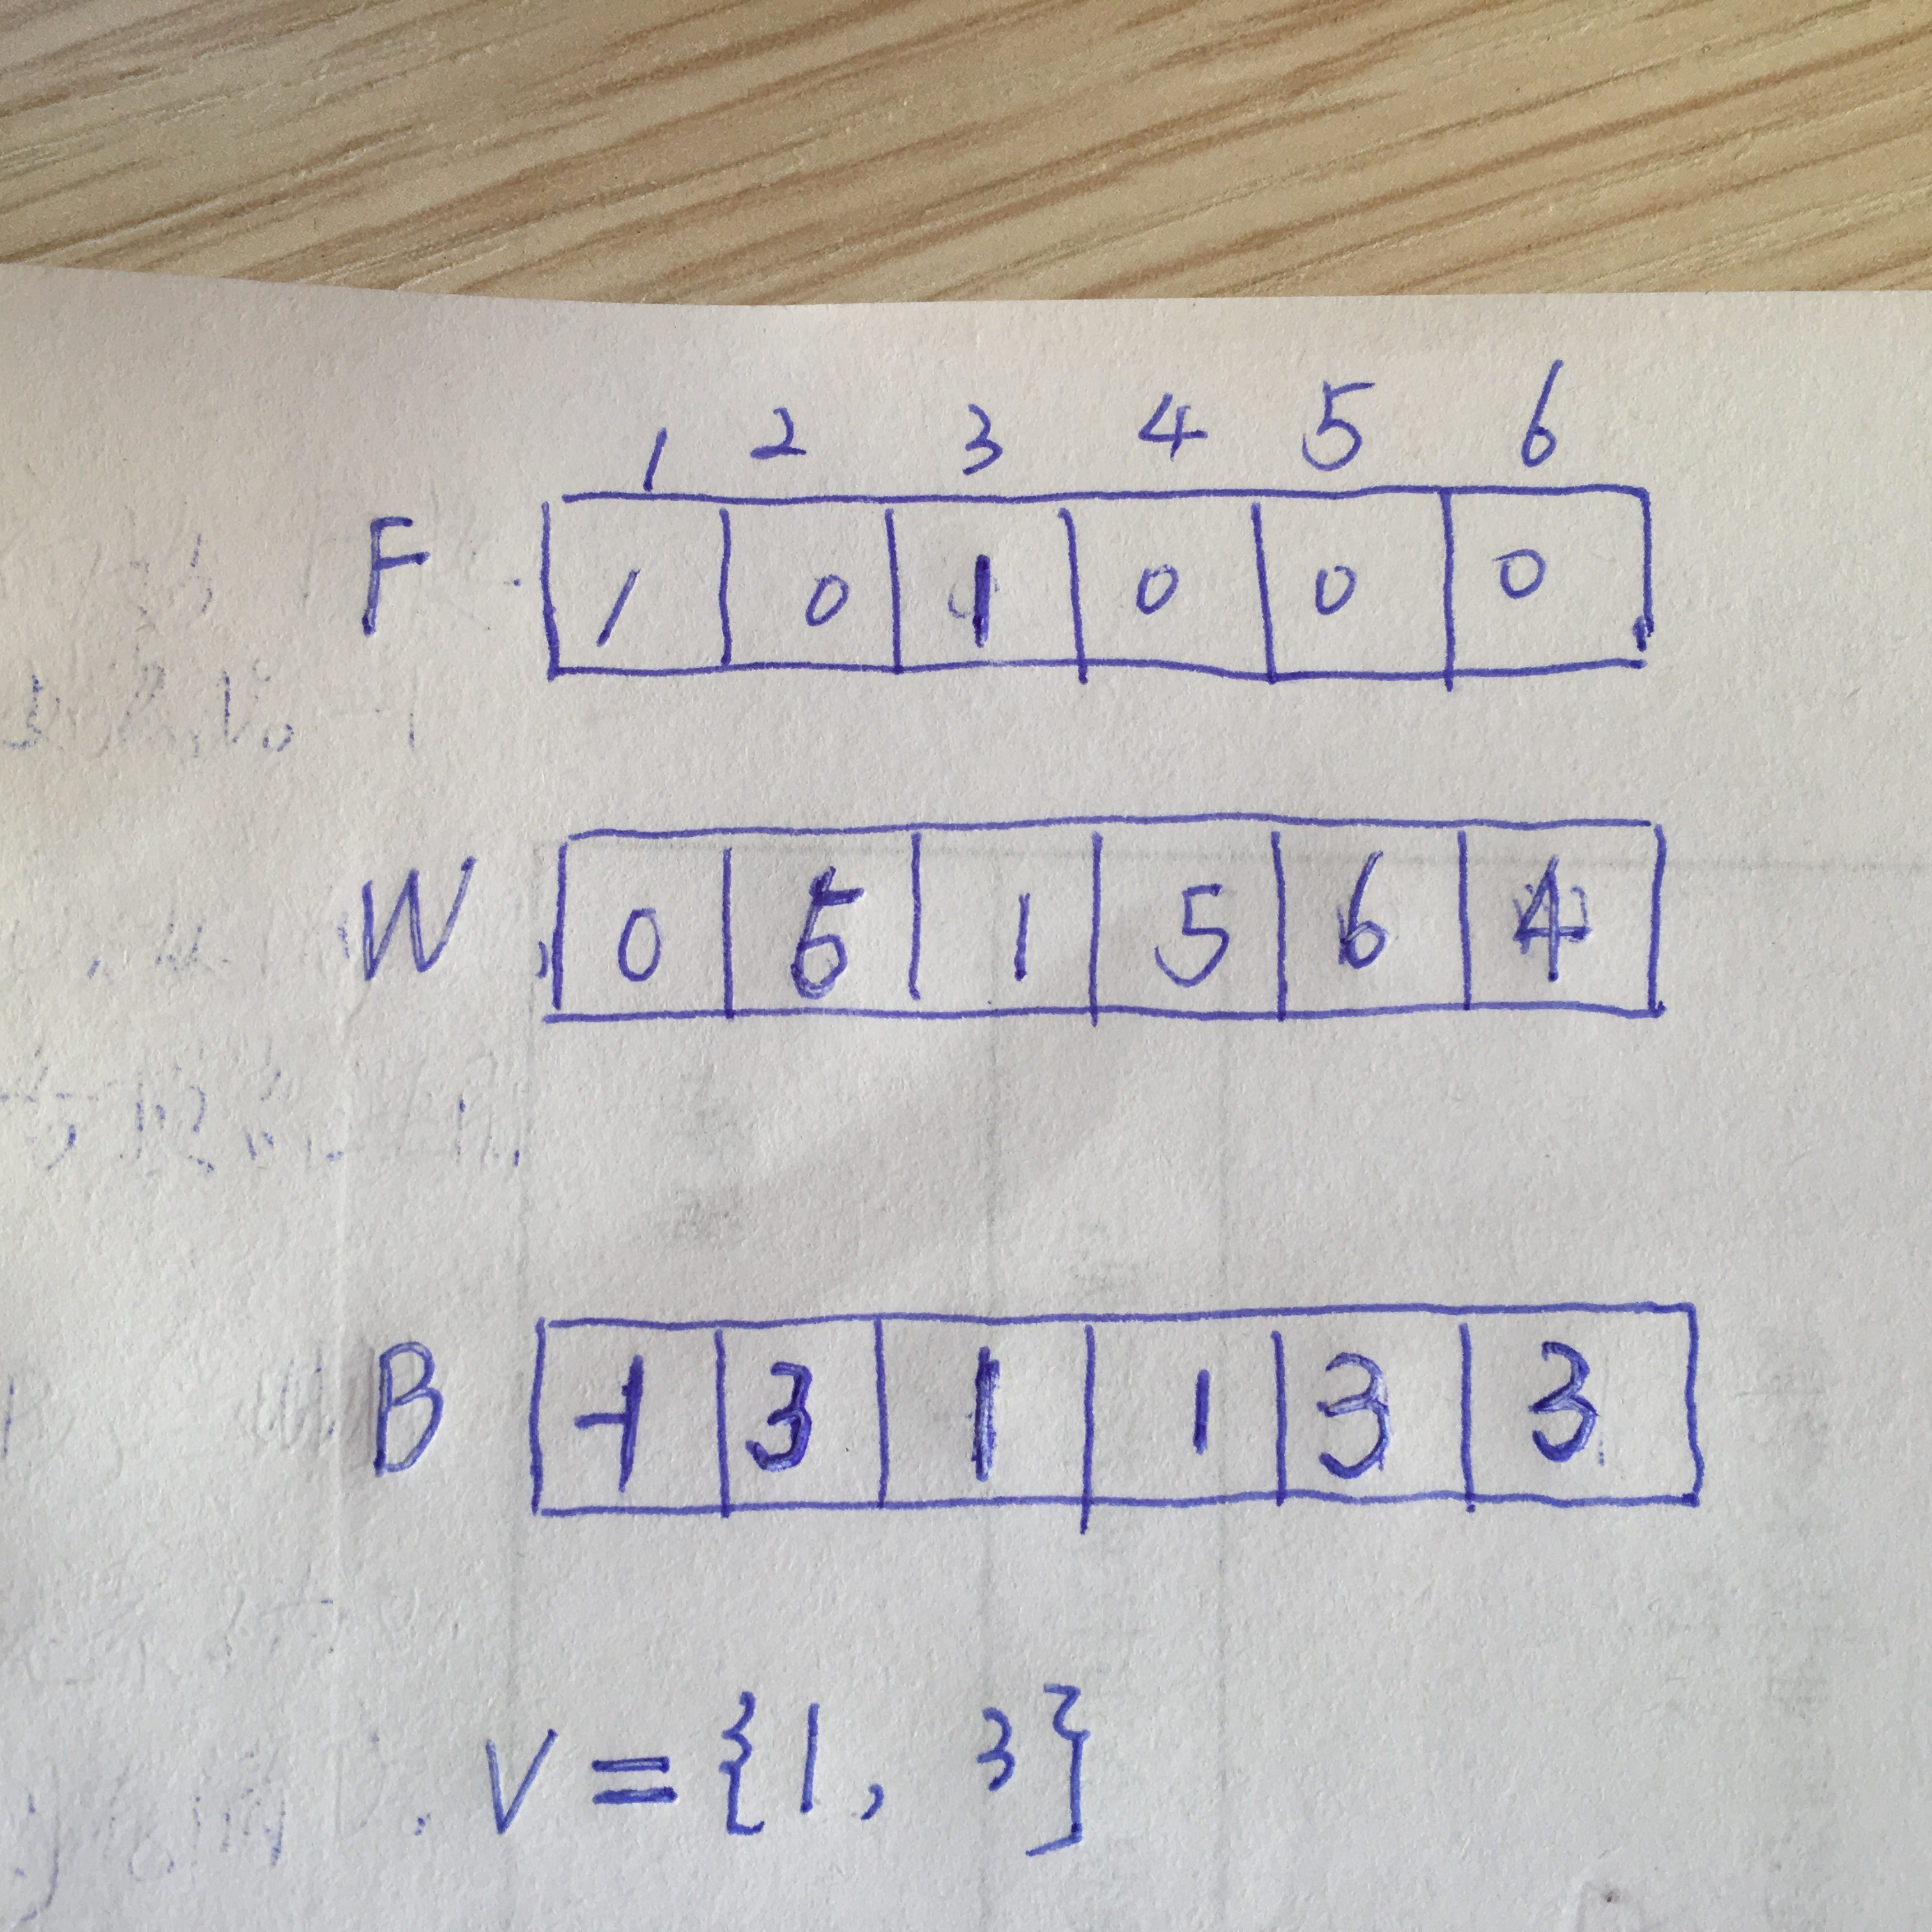 1 2 3 4 5 6
F 1 0 1 0 0 0
W 0 5 1 5 6 4
B -1 3 1 1 3 3
V = {1, 3}